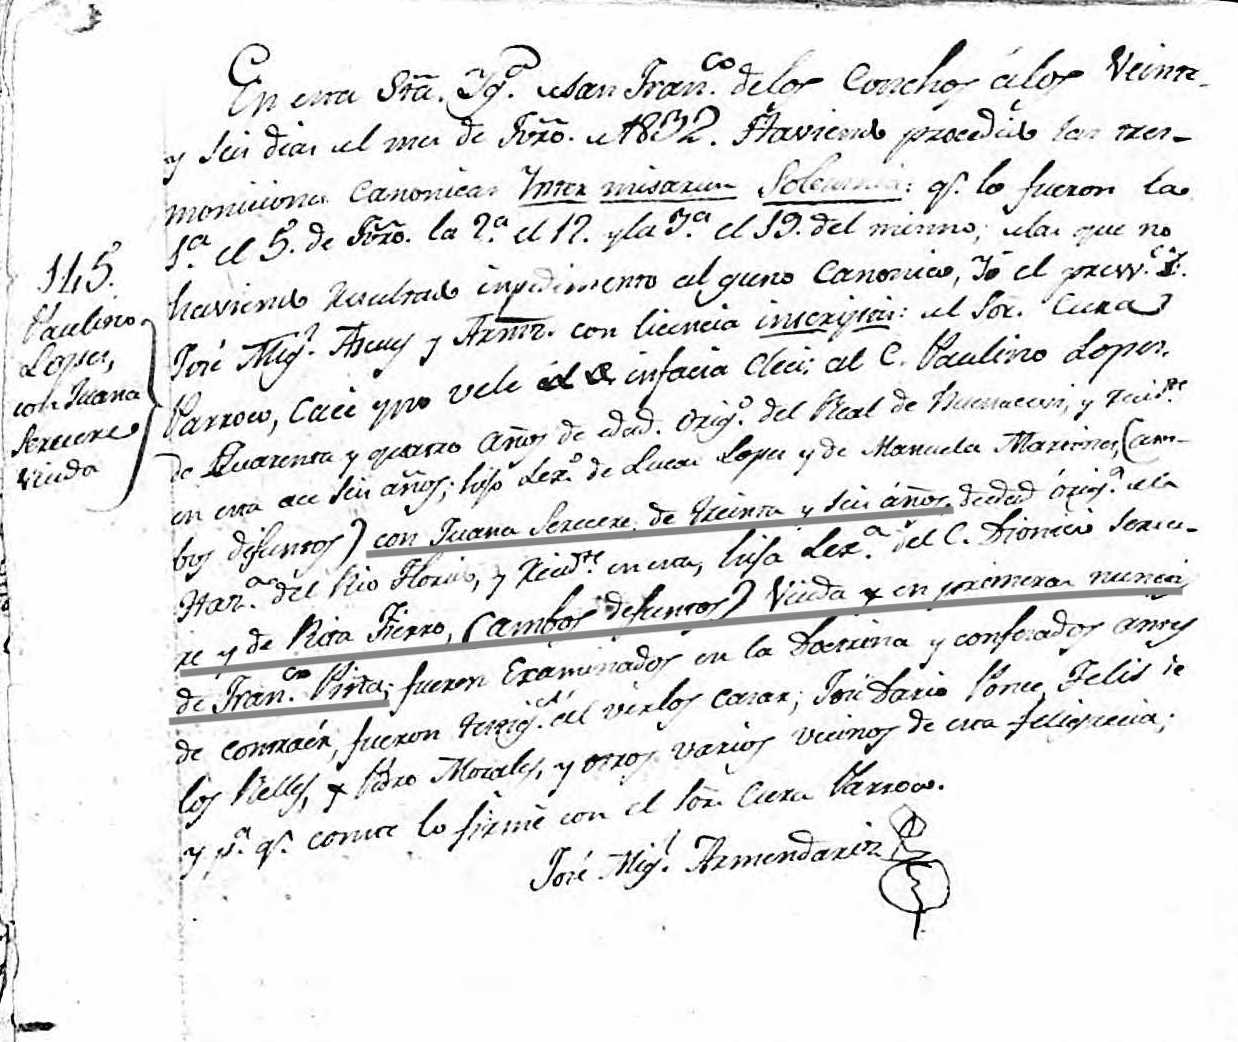 En esta Sta. Yga. de san Franco. de los Conchos á los Veinte
y seis dias del mes de Fbro. de 1832. Haviendo procedido las tres
moniciones Canonicas Ynter misarum Solemnia: qe. lo fueron la
1.a el 5. de Fbro. la 2.a el 12. y la 3.a el 19. del mismo, delas que no
haviendo resultado inpedimento alguno Canonico, Yo el presvo.
José Migl. y Armz. con licencia inscriptis: del Sor. Cura
Parroco, Casé y velé infacia Eleci: al C. Paulino Lopes.
de Quarenta y quatro Años de edad. Orig.o del Real de y recid.te
en esta ace seis años; hijo Lex.o de Lucas Lopes y de Manuela Martines, (am-
bos difuntos) con Juana Sercere, de treinta y seis años, de edad órig.a de la
Haz.a del Rio Florido, y recid.te en esta, hija Lex.a del C. Dionicio Serce-
re y de Rita Fierro, (ambos defuntos) Viuda en primeras nuncias
de Fran.co Pinta; fueron Examinados en la Doctrina y confesados antes
de contraér, fueron testig.s del verlos casar; José Dario Ponce, Felis de
los Relles, y Pedro Morales, y otros varios vecinos de esta feligrecia;
y p.a q.e conste lo firmé con el Sor. Cura Parroco.
José Migl. Armendariz
145.
Paulino
Lopes,
con Juana
Sercere
viuda